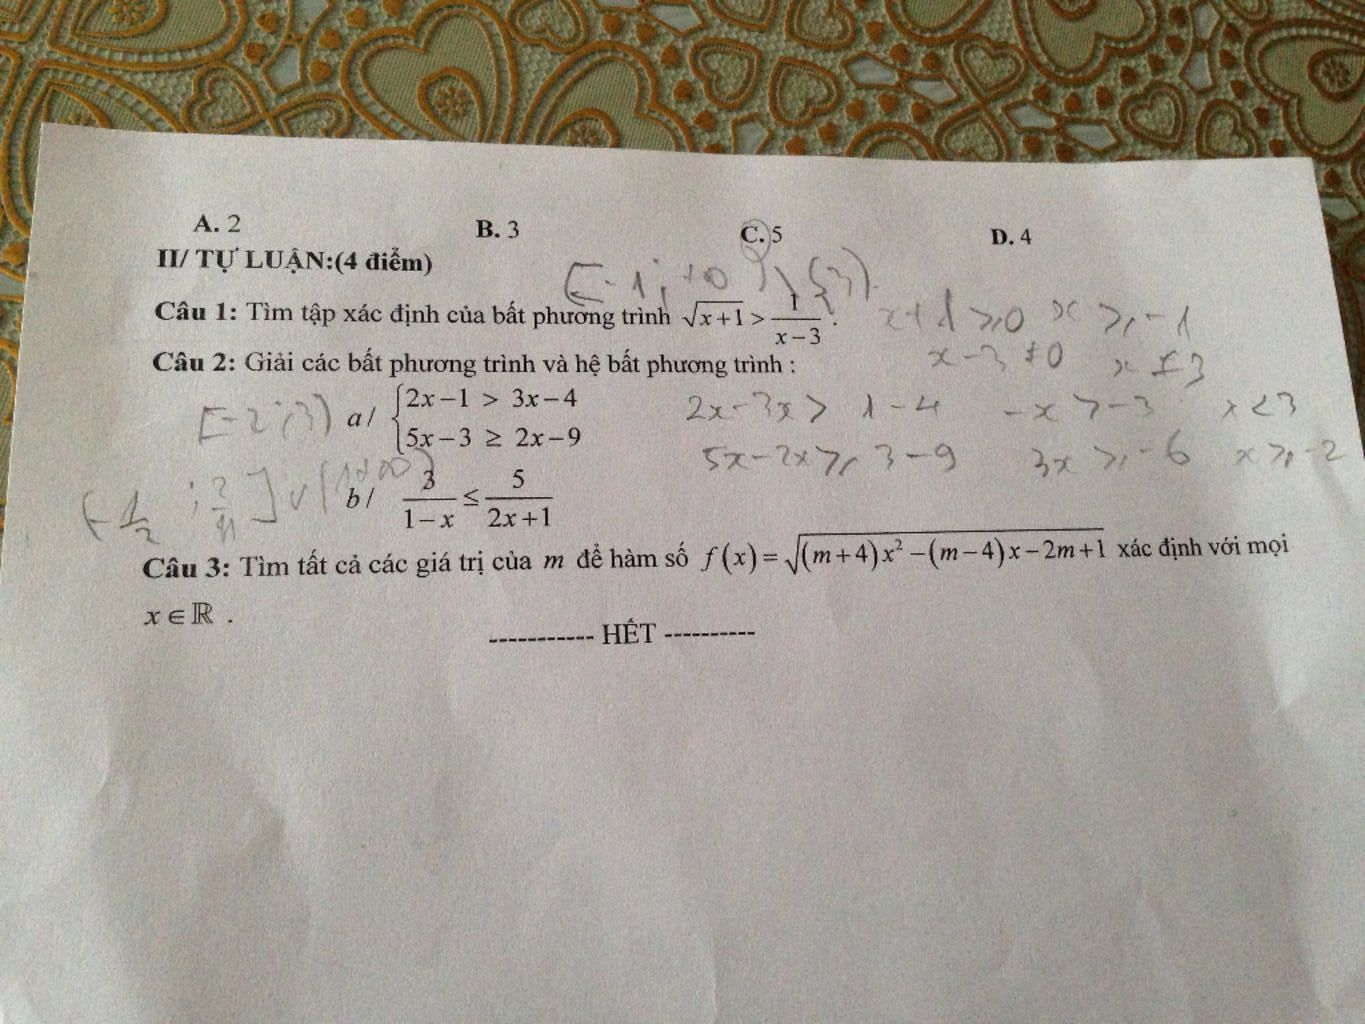 A. 2 B. 3 C. 5 D. 4
II/ TỰ LUẬN:(4 điểm)
[-1; +∞) \ {3}.
Câu 1: Tìm tập xác định của bất phương trình √(x+1) > 1/(x−3) . x+1 ≥ 0 x ≥ -1
x-3 ≠ 0 x ≠ 3
Câu 2: Giải các bất phương trình và hệ bất phương trình :
[-2;3) a/ { 2x−1 > 3x−4 2x-3x > 1-4 -x > -3 x<3
5x−3 ≥ 2x−9 5x-2x ≥ 3-9 3x ≥ -6 x ≥ -2
(-1/2 ; 2/11] ∪ (1+∞) b/ 3/(1−x) ≤ 5/(2x+1)
Câu 3: Tìm tất cả các giá trị của m để hàm số f(x) = √((m+4)x² −(m−4)x−2m+1) xác định với mọi
x ∈ ℝ .
----------- HẾT ----------